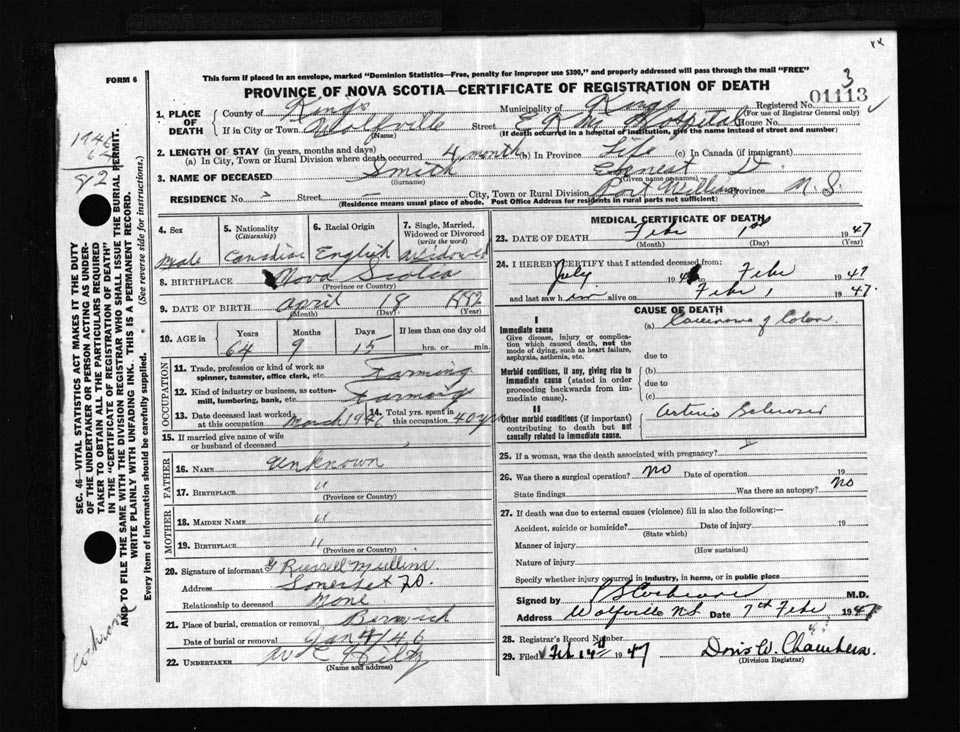 FORM 6
This form if placed in an envelope, marked "Dominion Statistics—Free, penalty for improper use $300," and properly addressed will pass through the mail "FREE"
PROVINCE OF NOVA SCOTIA—CERTIFICATE OF REGISTRATION OF DEATH
3
1. PLACE OF DEATH County of Kings Municipality of Kings Registered No. 01113
(For use of Registrar General only)
If in City or Town Wolfville Street E K M Hospital House No.
(Name) (If death occurred in a hospital of institution, give the name instead of street and number)
2. LENGTH OF STAY (in years, months and days)
(a) In City, Town or Rural Division where death occurred 4 month (b) In Province Life (c) In Canada (if immigrant)
3. NAME OF DECEASED Smith Ernest D.
(Surname) (Given name or names)
RESIDENCE No. Street City, Town or Rural Division Port Williams Province N.S.
(Residence means usual place of abode. Post Office Address for residents in rural parts not sufficient)
4. Sex Male
5. Nationality (Citizenship) Canadian
6. Racial Origin English
7. Single, Married, Widowed or Divorced (write the word) Widowed
8. BIRTHPLACE Nova Scotia
(Province or Country)
9. DATE OF BIRTH April 18 1882
(Month) (Day) (Year)
10. AGE in Years Months Days If less than one day old
64 9 15 hrs. or min.
OCCUPATION
11. Trade, profession or kind of work as spinner, teamster, office clerk, etc. Farming
12. Kind of industry or business, as cotton-mill, lumbering, bank, etc. Farming
13. Date deceased last worked at this occupation March 1946 14. Total yrs. spent in this occupation 40 yrs
15. If married give name of wife or husband of deceased
FATHER
16. NAME Unknown
17. BIRTHPLACE "
(Province or Country)
MOTHER
18. MAIDEN NAME "
19. BIRTHPLACE "
(Province or Country)
20. Signature of informant G Russell Mullins
Address Somerset
Relationship to deceased None
21. Place of burial, cremation or removal Berwick
Date of burial or removal Jan 4/46
22. UNDERTAKER W C Hiltz
(Name and address)
MEDICAL CERTIFICATE OF DEATH
23. DATE OF DEATH Febr 1st 1947
(Month) (Day) (Year)
24. I HEREBY CERTIFY that I attended deceased from:
July 194 Febr 1947
and last saw him alive on Febr 1 1947.
CAUSE OF DEATH
I
Immediate cause (a) Carcinoma of Colon
Give disease, injury or complication which caused death, not the mode of dying, such as heart failure, asphyxia, asthenia, etc. due to
Morbid conditions, if any, giving rise to immediate cause (stated in order proceeding backwards from immediate cause). (b)
due to
(c)
II
Other morbid conditions (if important) contributing to death but not causally related to immediate cause. Arterio Sclerosis
25. If a woman, was the death associated with pregnancy?
26. Was there a surgical operation? no Date of operation 19
State findings Was there an autopsy? no
27. If death was due to external causes (violence) fill in also the following:—
Accident, suicide or homicide? Date of injury 19
(State which)
Manner of injury
(How sustained)
Nature of injury
Specify whether injury occurred in industry, in home, or in public place
Signed by Cochrane M.D.
Address Wolfville N.S Date 7th Febr 1947
28. Registrar's Record Number
29. Filed Feb 14th 1947 Doris W. Chambers
(Division Registrar)
1946
64
82
SEC. 46—VITAL STATISTICS ACT MAKES IT THE DUTY
OF THE UNDERTAKER OR PERSON ACTING AS UNDER-
TAKER TO OBTAIN ALL THE PARTICULARS REQUIRED
IN THE "CERTIFICATE OF REGISTRATION OF DEATH"
AND TO FILE THE SAME WITH THE DIVISION REGISTRAR WHO SHALL ISSUE THE BURIAL PERMIT.
WRITE PLAINLY WITH UNFADING INK. THIS IS A PERMANENT RECORD.
Every item of information should be carefully supplied. (See reverse side for instructions.)